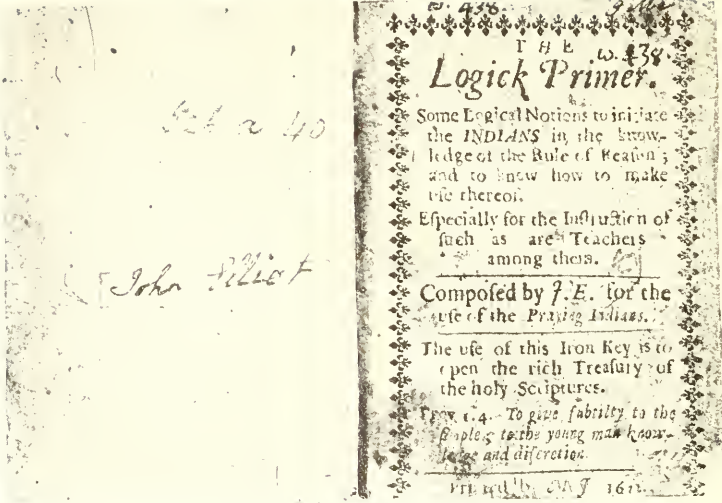 John Elliot
w. 438.
THE
w. 438.
Logick Primer.
Some Logical Notions to initiate
the INDIANS in the know-
ledge of the Rule of Reason;
and to know how to make
use thereof.
Eſpecially for the Inſtruction of
ſuch as are Teachers
among them.
Compoſed by J.E. for the
uſe of the Praying Indians.
The uſe of this Iron Key is to
open the rich Treaſury of
the holy Scriptures.
Prov 1.4. To give ſubtilty to the
ſimple, to the young man know-
ledge and diſcretion.
Printed by M.J. 167